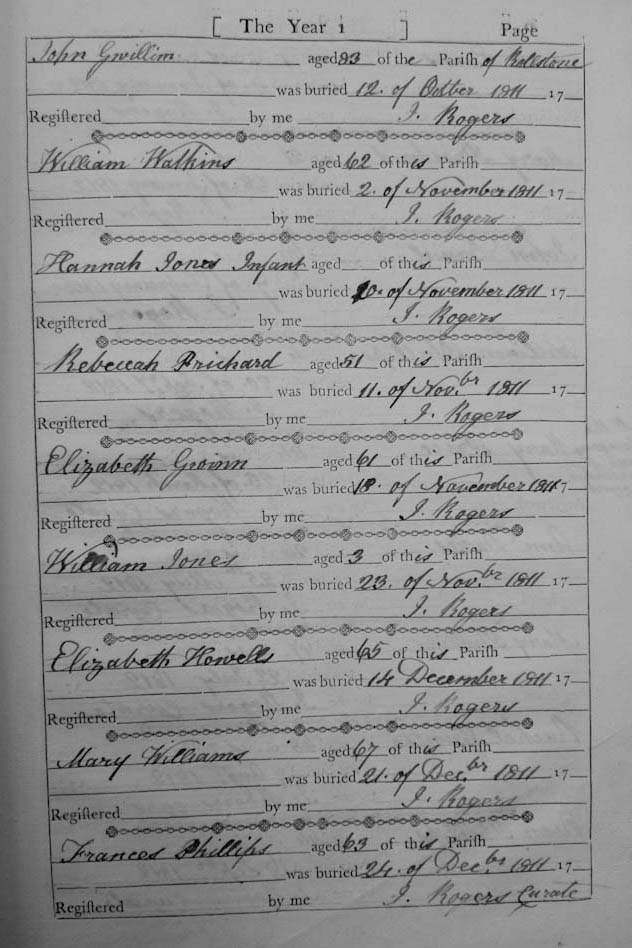 [ The Year 1 ] Page
John Gwillim aged 83 of the Parish of Rollstone
was buried 12. of Octber 1811 17
Registered by me I. Rogers
William Watkins aged 62 of this Parish
was buried 2. of November 1811 17
Registered by me I. Rogers
Hannah Jones Infant aged of this Parish
was buried 10. of November 1811 17
Registered by me I. Rogers
Rebeccah Prichard aged 51 of this Parish
was buried 11. of Nov.br 1811 17
Registered by me I. Rogers
Elizabeth Gwinn aged 61 of this Parish
was buried 18. of November 1811 17
Registered by me I. Rogers
William Jones aged 3 of this Parish
was buried 23. of Nov.br 1811 17
Registered by me I. Rogers
Elizabeth Howells aged 65 of this Parish
was buried 14 December 1811 17
Registered by me I. Rogers
Mary Williams aged 67 of this Parish
was buried 21. of Dec.br 1811 17
Registered by me I. Rogers
Frances Phillips aged 63 of this Parish
was buried 24. of Dec.br 1811 17
Registered by me I. Rogers Curate